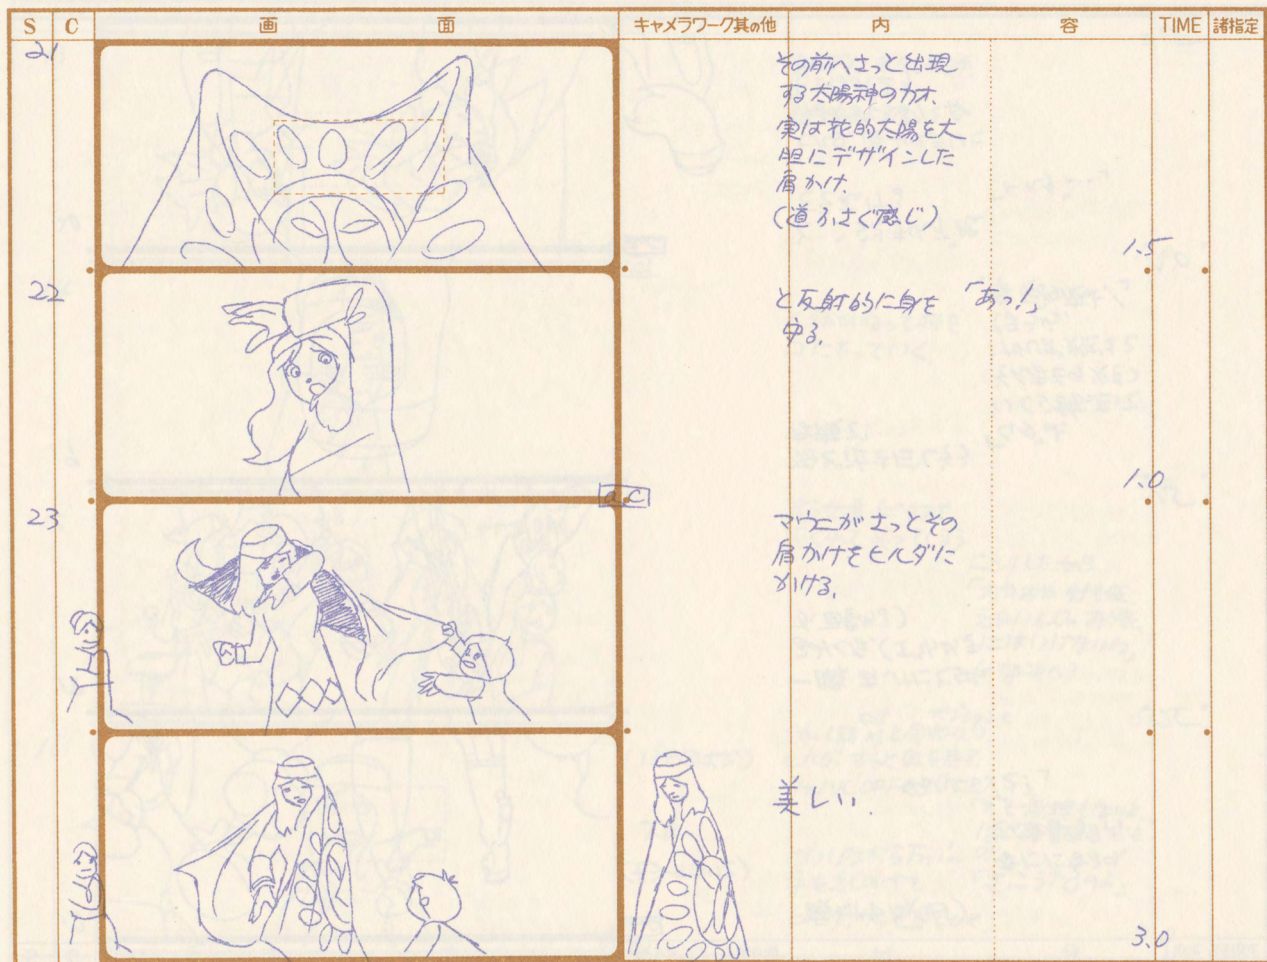 S C 画 面 キャメラワーク其の他 内 容 TIME 諸指定
21
その前へさっと出現
する太陽神のカオ、
実は花的太陽を大
胆にデザインした
肩かけ.
(道ふさぐ感じ)
1.5
22
と反射的に身を
守る.
「あっ!」
1.0
a.c
23
マウニがさっとその
肩かけをヒルダに
かける.
美しい.
3.0